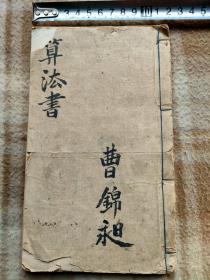 算法書
曹錦昶
3 4 5 6 7 8 9 10 1 2 3 4 5